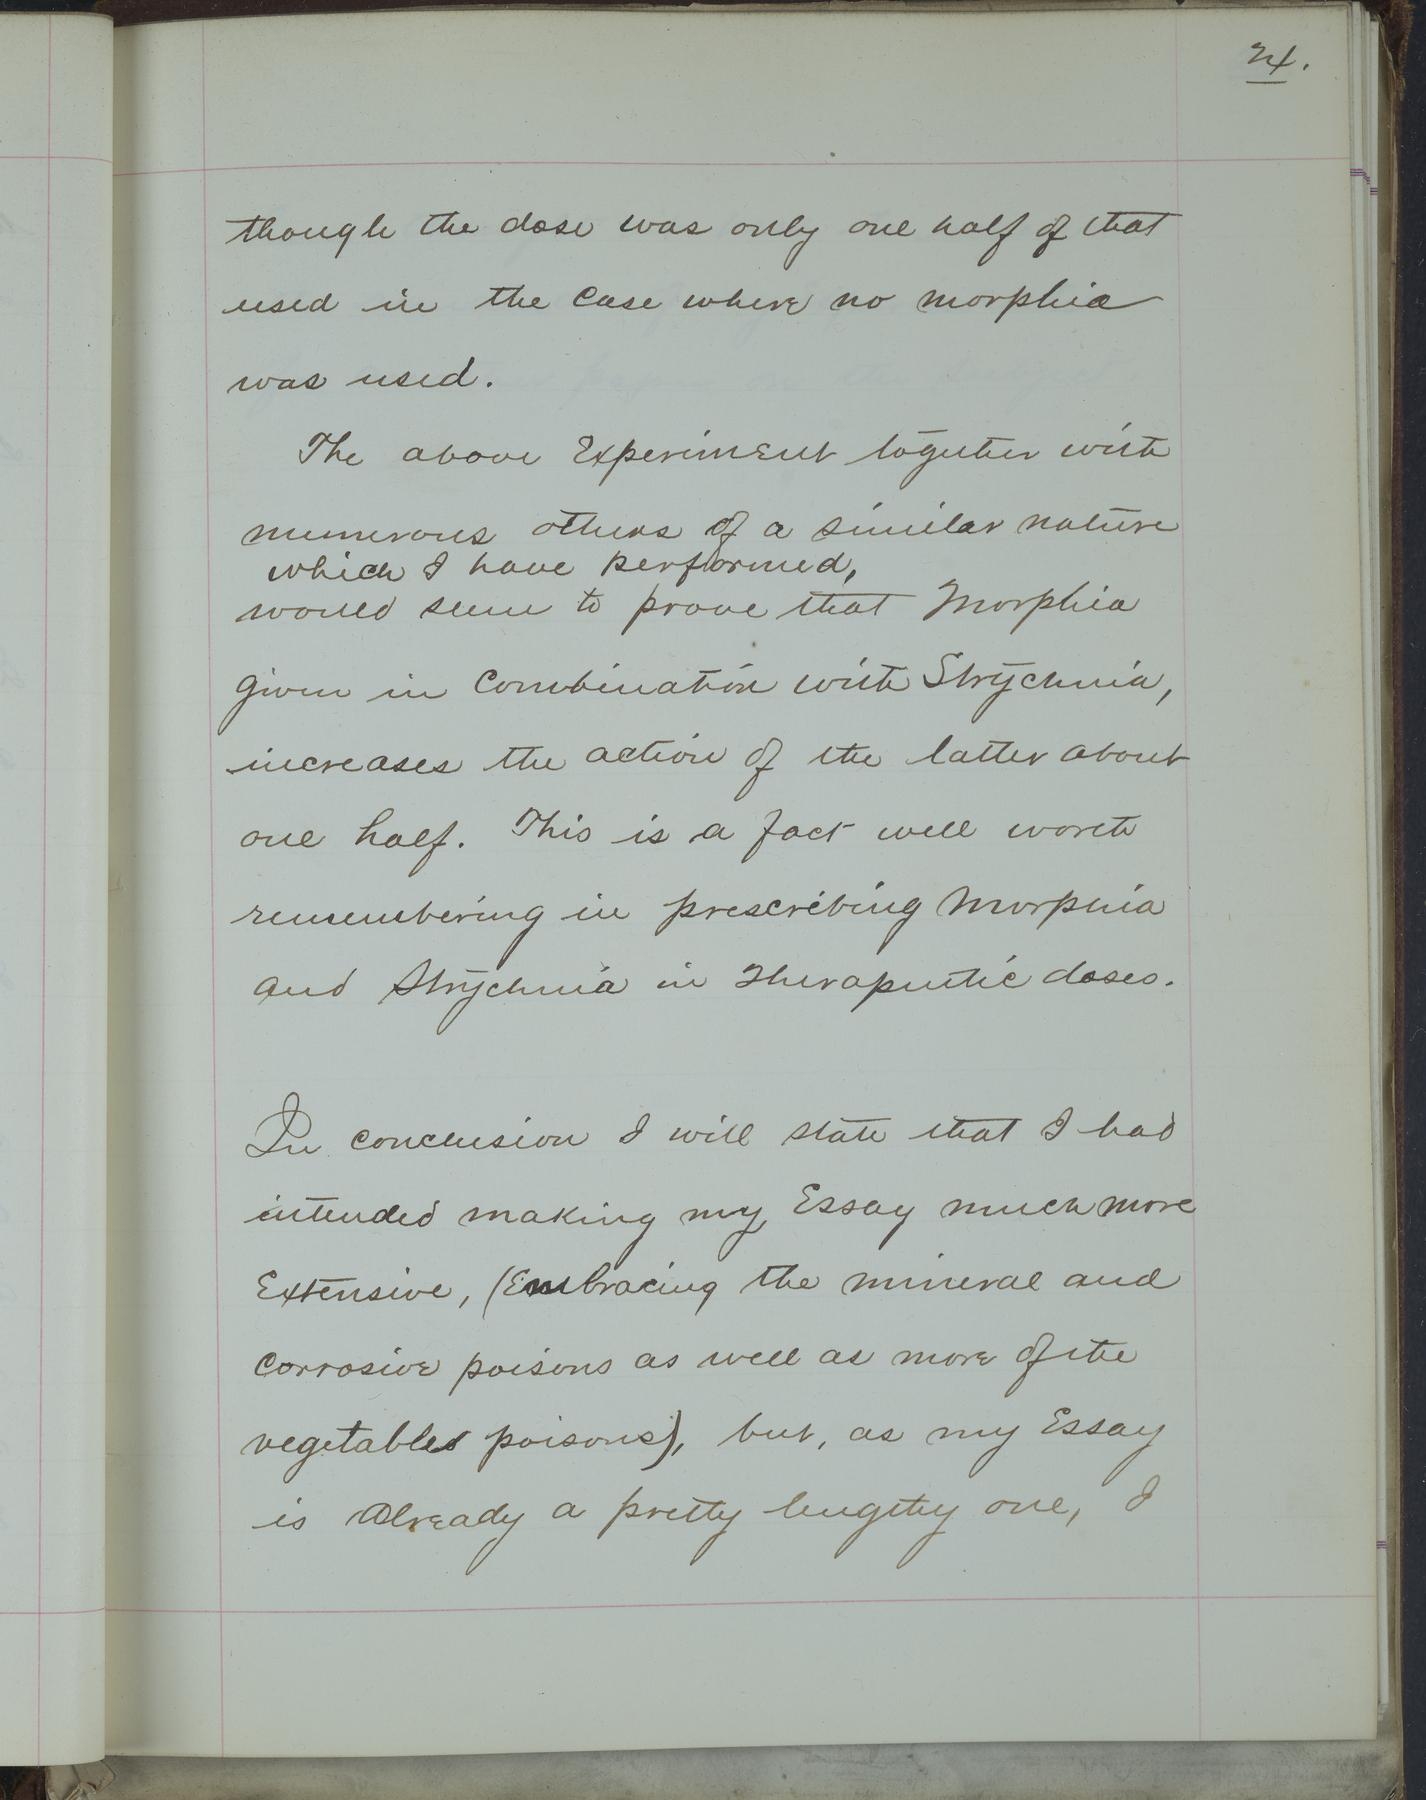 24.
though the dose was only one half of that
used in the case where no morphia
was used.
The above Experiment together with
numerous others of a similar nature
which I have performed,
would seem to prove that Morphia
given in Combination with Strychnia,
increases the action of the latter about
one half. This is a fact well worth
remembering in prescribing Morphia
and Strychnia in Therapeutic doses.
In conclusion I will state that I had
intended making my Essay much more
Extensive, (Embracing the mineral and
Corrosive poisons as well as more of the
vegetables poisons), but, as my Essay
is Already a pretty lengthy one, I